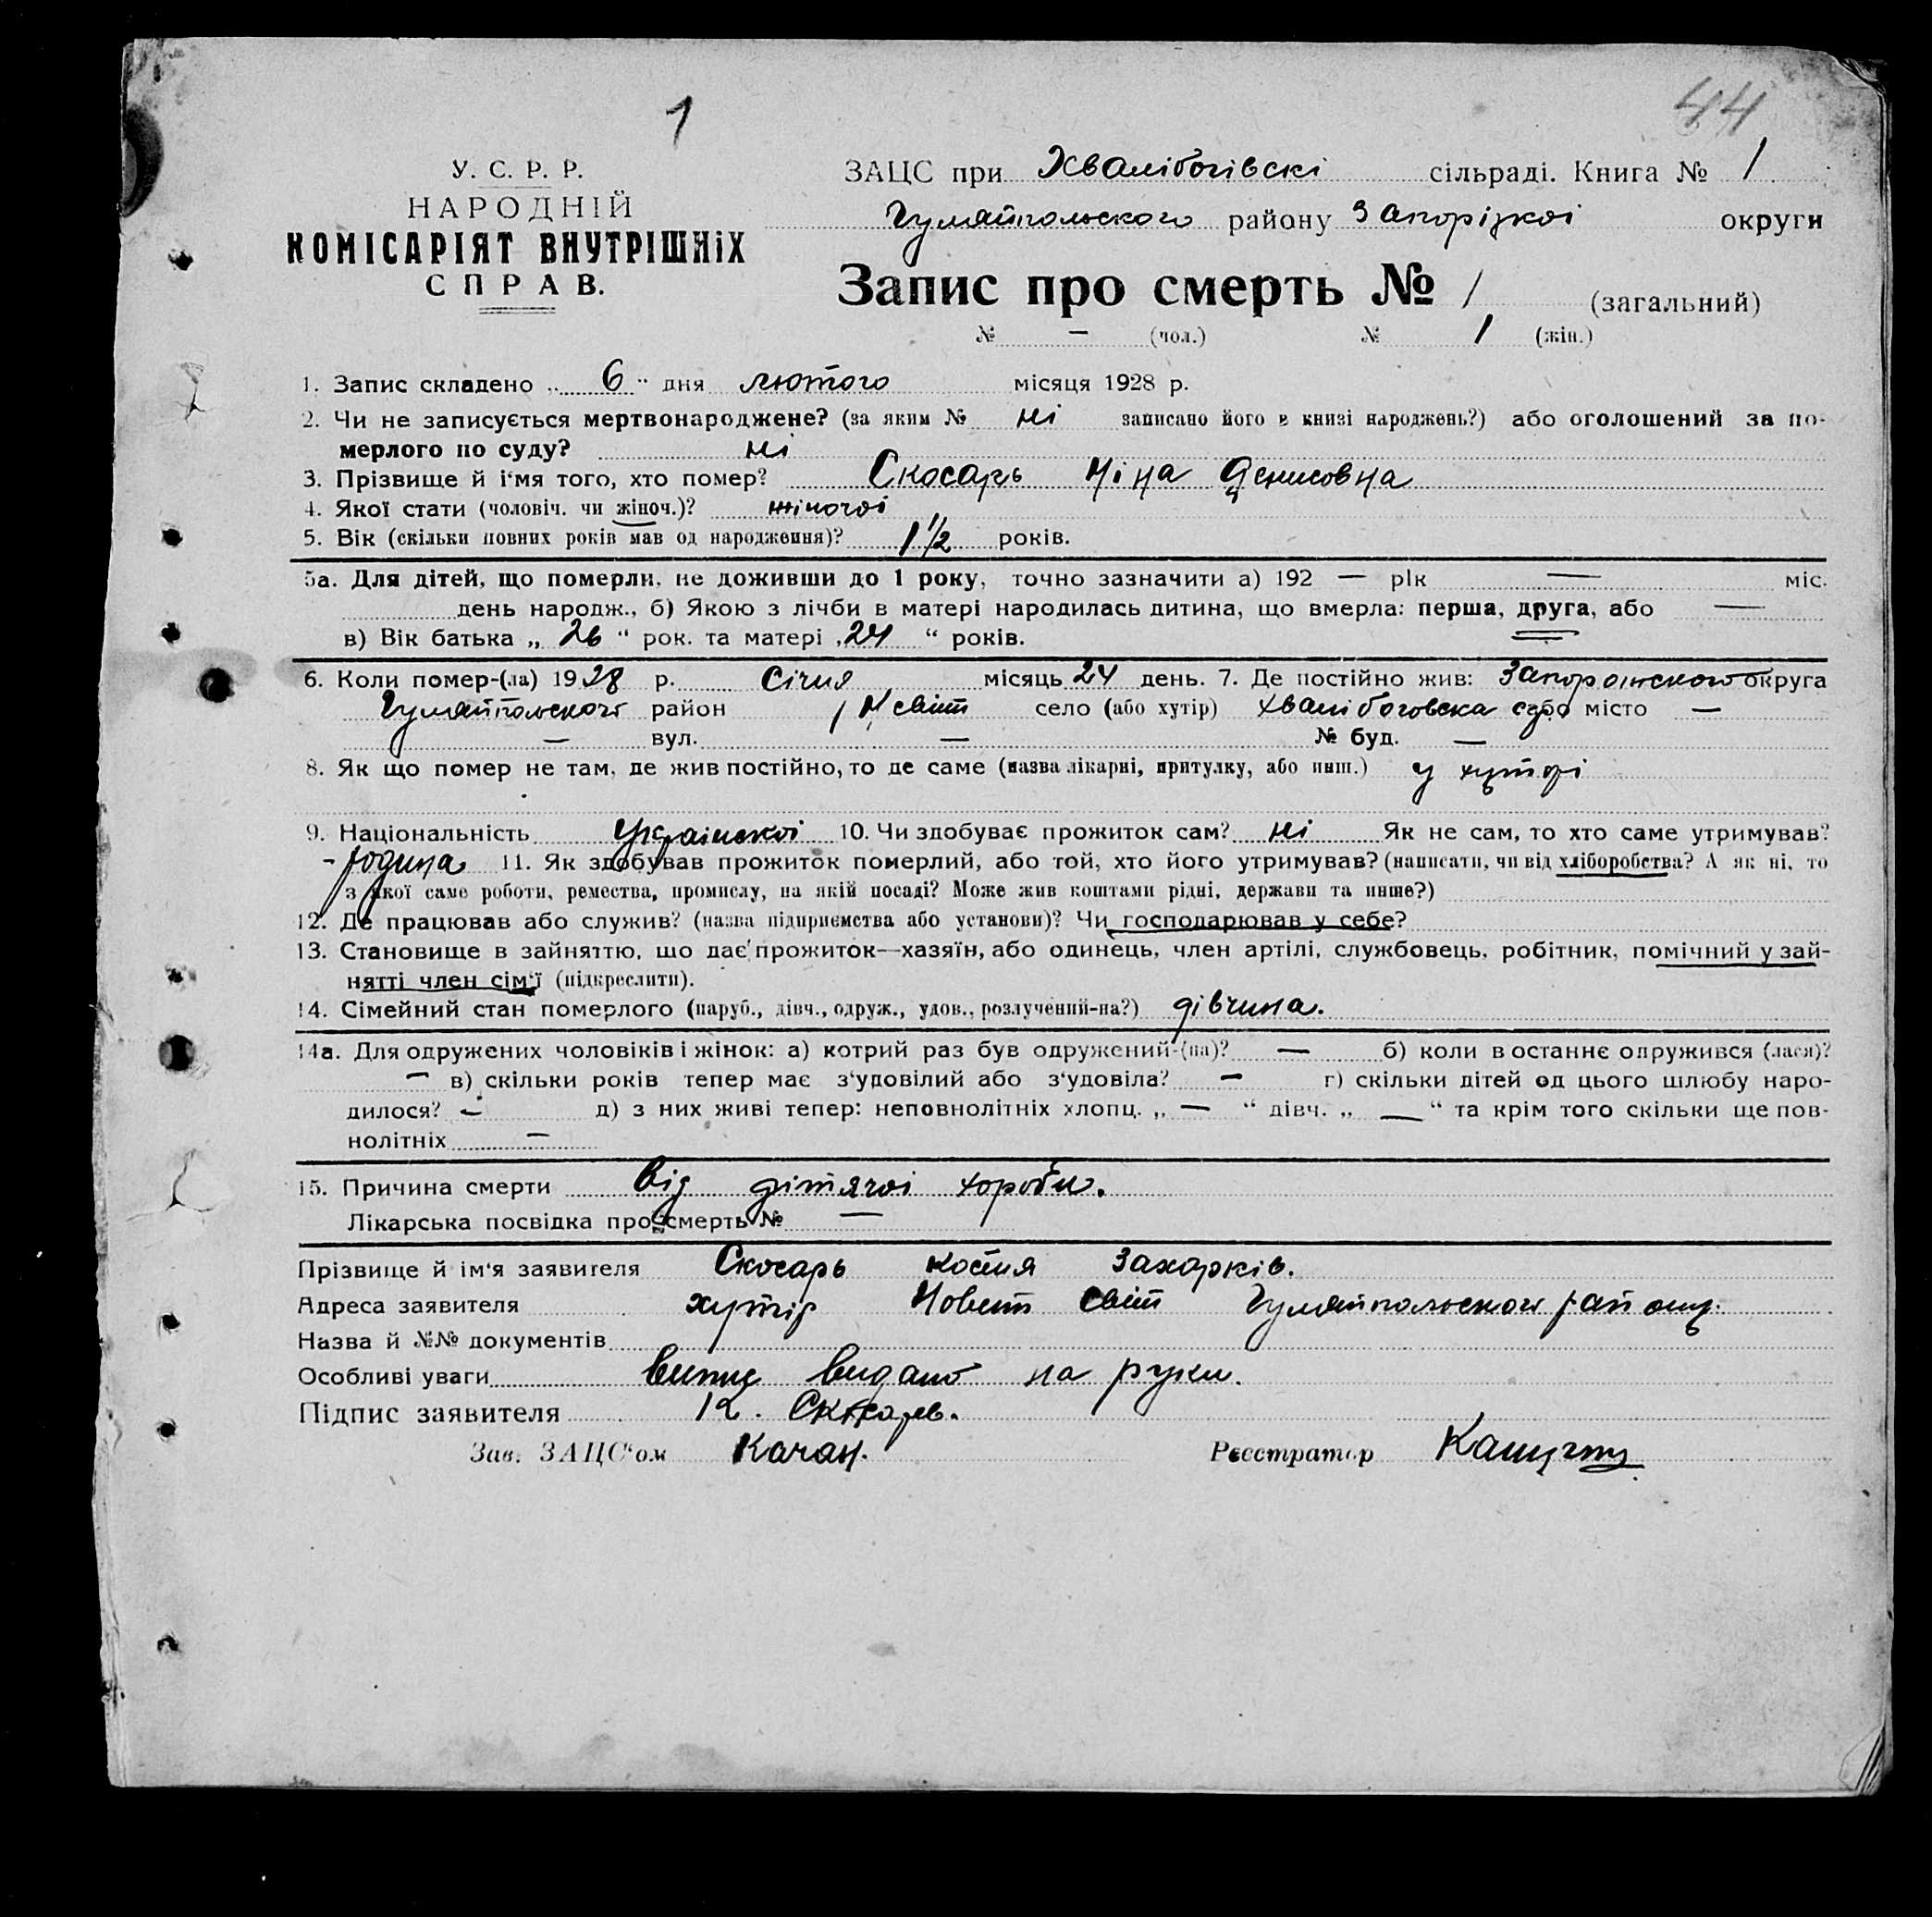 44
1
У. С. Р. Р.
НАРОДНІЙ
КОМІСАРІЯТ ВНУТРІШНІХ
СПРАВ.
ЗАЦС при Хвалібогівскі сільраді. Книга № 1
Гуляйпольского району Запорізкоі округи
Запис про смерть № 1 (загальний)
№ — (чол.) № 1 (жін.)
1. Запис складено „ 6 " дня лютого місяця 1928 р.
2. Чи не записується мертвонароджене? (за яким № ні записано його в книзі народжень?) або оголошений за по-
мерлого по суду? ні
3. Прізвище й і'мя того, хто помер? Скосарь Ніна Денисовна
4. Якої стати (чоловіч. чи жіноч.)? жіночоі
5. Вік (скільки повних років мав од народження)? 1 1/2 років.
5а. Для дітей, що померли, не доживши до 1 року, точно зазначити а) 192 — рік — міс.
день народж., б) Якою з лічби в матері народилась дитина, що вмерла: перша, друга, або —
в) Вік батька „ 26 " рок. та матері „ 24 " років.
6. Коли помер-(ла) 1928 р. Січня місяць 24 день. 7. Де постійно жив: Запорожского округа
Гуляйпольского район Н світ село (або хутір) Хвалібоговска або місто —
— вул. — № буд. —
8. Як що помер не там, де жив постійно, то де саме (назва лікарні, притулку, або инш.) у хуторі
9. Національність Украінскоі 10. Чи здобуває прожиток сам? ні Як не сам, то хто саме утримував?
- родина 11. Як здобував прожиток померлий, або той, хто його утримував? (написати, чи від хліборобства? А як ні, то
з якої саме роботи, ремества, промислу, на якій посаді? Може жив коштами рідні, держави та инше?)
12. Де працював або служив? (назва підприємства або установи)? Чи господарював у себе?
13. Становище в зайняттю, що дає прожиток—хазяїн, або одинець, член артілі, службовець, робітник, помічний у зай-
нятті член сім'ї (підкреслити).
14. Сімейний стан померлого (паруб., дівч., одруж., удов., розлучений-на?) дівчина.
14а. Для одружених чоловіків і жінок: а) котрий раз був одружений-(на)? — б) коли в останнє одружився (лася)?
— в) скільки років тепер має з'удовілий або з'удовіла? — г) скільки дітей од цього шлюбу наро-
дилося? — д) з них живі тепер: неповнолітніх хлопц. „ — " дівч. „ — " та крім того скільки ще пов-
нолітніх —
15. Причина смерти Від дітячоі хороби.
Лікарська посвідка про смерть № —
Прізвище й ім'я заявителя Скосарь Костя Захарків.
Адреса заявителя хутір Новит Світ Гуляйпольского району.
Назва й №№ документів
Особливі уваги Випис видано на руки.
Підпис заявителя К. Скосарь.
Зав. ЗАЦС'ом Качан. Реєстратор